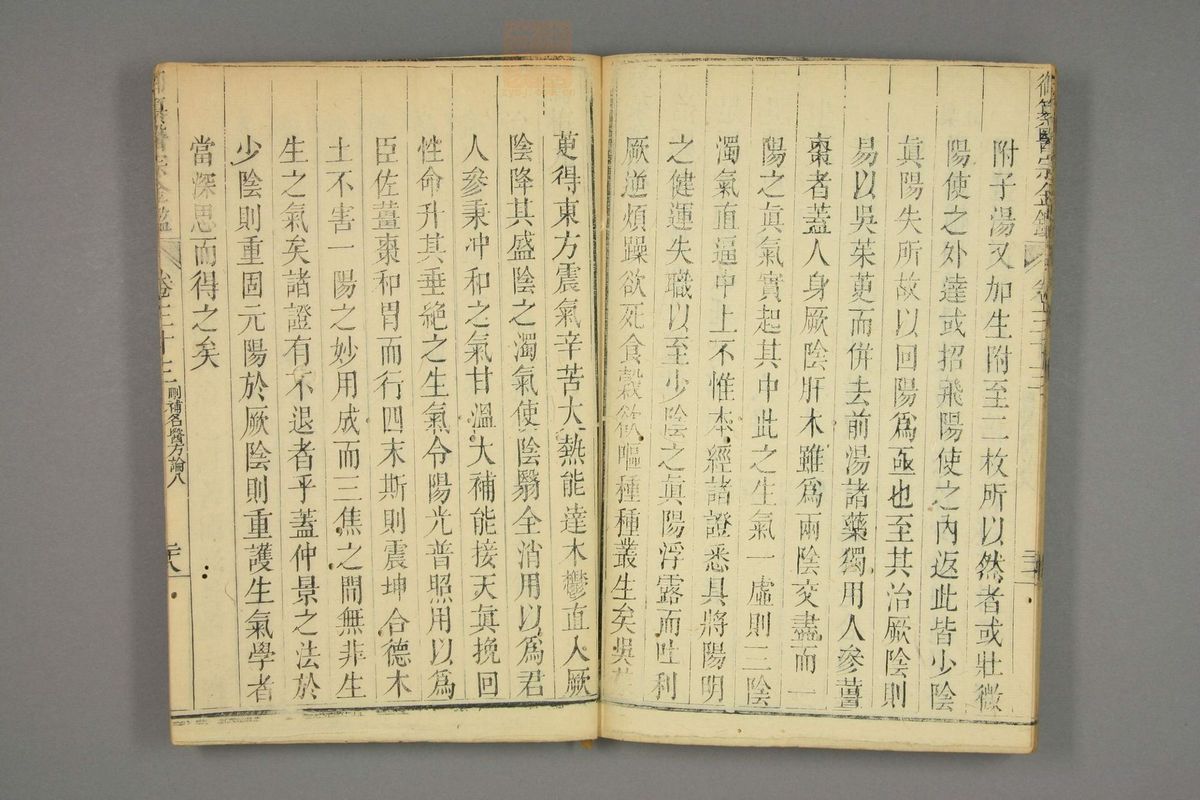 御纂醫宗金鑑
附子湯又加生附至二枚所以然者或壯微
陽使之外達或招飛陽使之內返此皆少陰
眞陽失所故以回陽爲亟也至其治厥陰則
易以吳茱萸而併去前湯諸藥獨用人參薑
棗者蓋人身厥陰肝木雖爲兩陰交盡而一
陽之眞氣實起其中此之生氣一虛則三陰
濁氣直逼中上不惟本經諸證悉具將陽明
之健運失職以至少陰之眞陽浮露而吐利
厥逆煩躁欲死食穀欲嘔種種叢生矣吳茱
萸得東方震氣辛苦大熱能達木鬱直入厥
陰降其盛陰之濁氣使陰翳全消用以爲君
人參秉冲和之氣甘溫大補能接天眞挽回
性命升其垂絕之生氣令陽光普照用以爲
臣佐薑棗和胃而行四末斯則震坤合德木
土不害一陽之妙用成而三焦之間無非生
生之氣矣諸證有不退者乎蓋仲景之法於
少陰則重固元陽於厥陰則重護生氣學者
當深思而得之矣
卷三十三
刪補名醫方論八
二十八